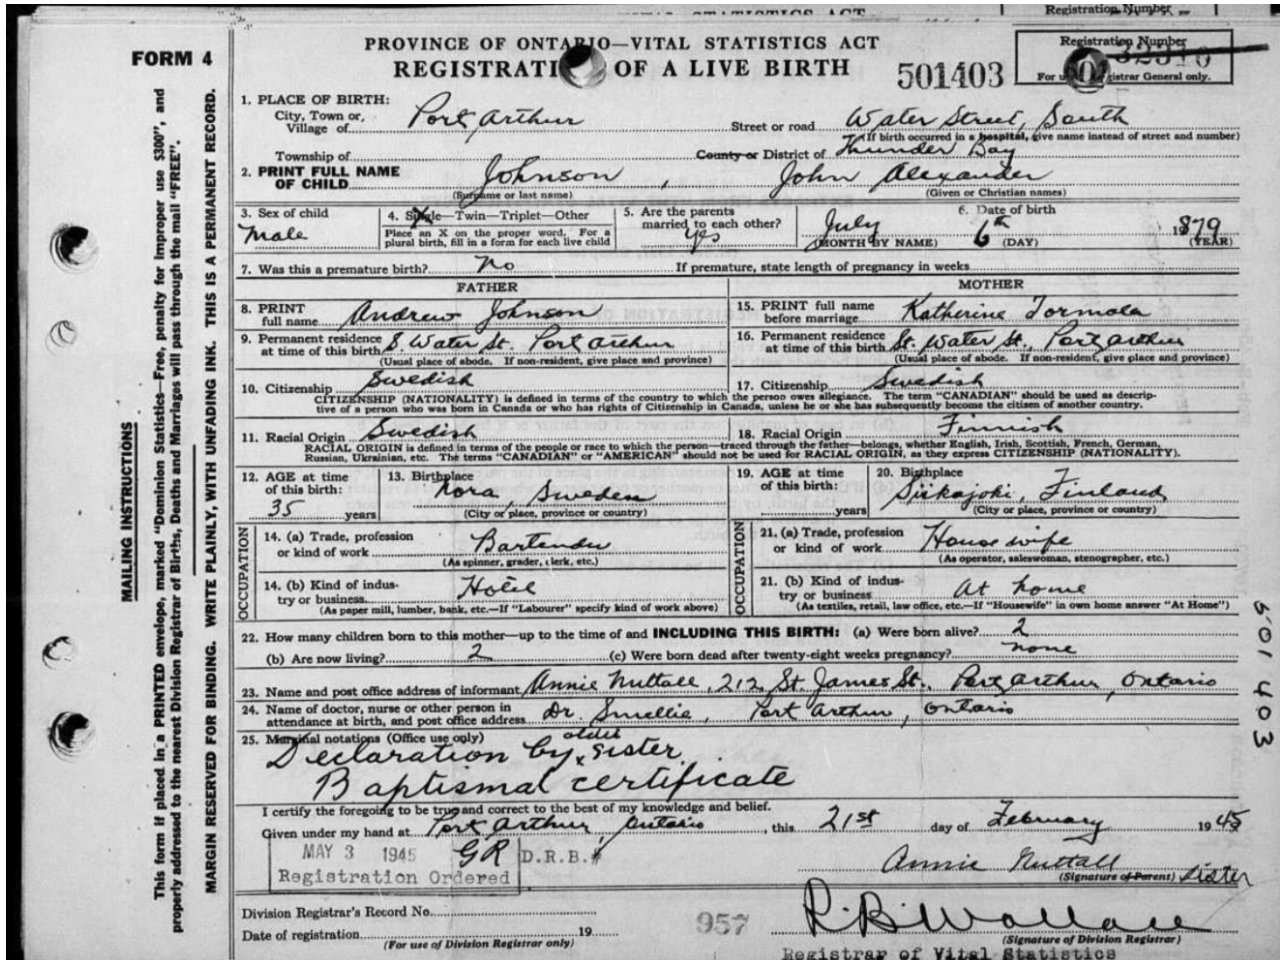 VITAL STATISTICS ACT
Registration Number
FORM 4
PROVINCE OF ONTARIO—VITAL STATISTICS ACT
REGISTRATI OF A LIVE BIRTH
501403
Registration Number
For u gistrar General only.
1. PLACE OF BIRTH:
City, Town or, Village of Port Arthur Street or road Water Street, South
(If birth occurred in a hospital, give name instead of street and number)
Township of County or District of Thunder Bay
2. PRINT FULL NAME OF CHILD Johnson, John Alexander
(Surname or last name) (Given or Christian names)
3. Sex of child Male
4. Single—Twin—Triplet—Other X
Place an X on the proper word. For a plural birth, fill in a form for each live child
5. Are the parents married to each other? yes
6. Date of birth
July 6th 1879
(MONTH BY NAME) (DAY) (YEAR)
7. Was this a premature birth? no If premature, state length of pregnancy in weeks
FATHER MOTHER
8. PRINT full name Andrew Johnson
15. PRINT full name before marriage Katherine Tormala
9. Permanent residence at time of this birth S. Water St. Port Arthur
(Usual place of abode. If non-resident, give place and province)
16. Permanent residence at time of this birth St. Water St., Port Arthur
(Usual place of abode. If non-resident, give place and province)
10. Citizenship Swedish 17. Citizenship Swedish
CITIZENSHIP (NATIONALITY) is defined in terms of the country to which the person owes allegiance. The term "CANADIAN" should be used as descriptive of a person who was born in Canada or who has rights of Citizenship in Canada, unless he or she has subsequently become the citizen of another country.
11. Racial Origin Swedish 18. Racial Origin Finnish
RACIAL ORIGIN is defined in terms of the people or race to which the person—traced through the father—belongs, whether English, Irish, Scottish, French, German, Russian, Ukrainian, etc. The terms "CANADIAN" or "AMERICAN" should not be used for RACIAL ORIGIN, as they express CITIZENSHIP (NATIONALITY).
12. AGE at time of this birth: 35 years
13. Birthplace Nora, Sweden
(City or place, province or country)
19. AGE at time of this birth: years
20. Birthplace Siikajoki, Finland
(City or place, province or country)
OCCUPATION
14. (a) Trade, profession or kind of work Bartender
(As spinner, grader, clerk, etc.)
14. (b) Kind of industry or business Hotel
(As paper mill, lumber, bank, etc.—If "Labourer" specify kind of work above)
OCCUPATION
21. (a) Trade, profession or kind of work Housewife
(As operator, saleswoman, stenographer, etc.)
21. (b) Kind of industry or business At home
(As textiles, retail, law office, etc.—If "Housewife" in own home answer "At Home")
22. How many children born to this mother—up to the time of and INCLUDING THIS BIRTH: (a) Were born alive? 2
(b) Are now living? 2 (c) Were born dead after twenty-eight weeks pregnancy? none
23. Name and post office address of informant Annie Nuttall, 212 St. James St., Port Arthur, Ontario
24. Name of doctor, nurse or other person in attendance at birth, and post office address Dr. Smellie, Port Arthur, Ontario
25. Marginal notations (Office use only)
Declaration by oldest sister
Baptismal certificate
I certify the foregoing to be true and correct to the best of my knowledge and belief.
Given under my hand at Port Arthur, Ontario, this 21st day of February 1945
MAY 3 1945 GR D.R.B.#
Registration Ordered
Annie Nuttall
(Signature of Parent) sister
Division Registrar's Record No.
Date of registration 19
(For use of Division Registrar only)
957
R.B. Wallace
(Signature of Division Registrar)
Registrar of Vital Statistics
501403
MAILING INSTRUCTIONS
This form if placed in a PRINTED envelope, marked "Dominion Statistics—Free, penalty for improper use $300", and
properly addressed to the nearest Division Registrar of Births, Deaths and Marriages will pass through the mail "FREE".
MARGIN RESERVED FOR BINDING. WRITE PLAINLY, WITH UNFADING INK. THIS IS A PERMANENT RECORD.